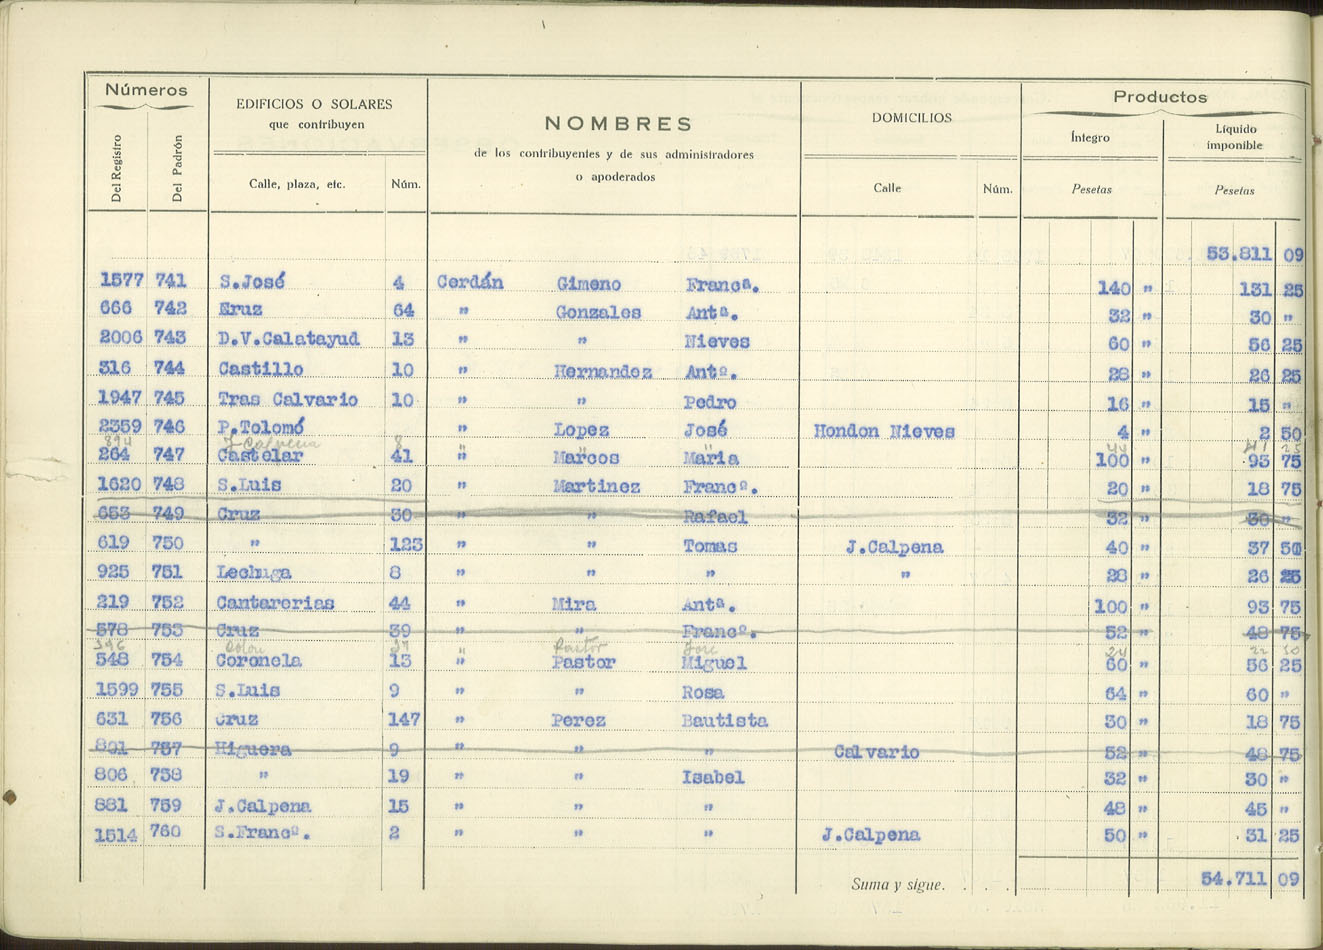 Números EDIFICIOS O SOLARES que contribuyen NOMBRES de los contribuyentes y de sus administradores o apoderados DOMICILIOS Productos
Del Registro Del Padrón Calle, plaza, etc. Núm. Calle Núm. Íntegro Pesetas Líquido imponible Pesetas
53.811 09
1577 741 S.José 4 Cerdán Gimeno Francª. 140 " 131 25
666 742 Cruz 64 " Gonzales Antª. 32 " 30 "
2006 743 D.V.Calatayud 13 " " Nieves 60 " 56 25
316 744 Castillo 10 " Hernandez Antº. 28 " 26 25
1947 745 Tras Calvario 10 " " Pedro 16 " 15 "
2359 746 P.Tolomó " Lopez José Hondon Nieves 4 " 2 50
894 J Calpena 8 " " " 44 41 25
264 747 Castelar 41 " Marcos Maria 100 " 93 75
1620 748 S.Luis 20 " Martinez Francº. 20 " 18 75
653 749 Cruz 30 " " Rafael 32 " 30 "
619 750 " 123 " " Tomas J.Calpena 40 " 37 50
925 751 Lechuga 8 " " " " 28 " 26 25
219 752 Cantarerias 44 " Mira Antª. 100 " 93 75
578 753 Cruz 39 " " Francº. 52 " 48 75
396 Colon 27 " Pastor José 24 22 50
548 754 Coronela 13 " Pastor Miguel 60 " 56 25
1599 755 S.Luis 9 " " Rosa 64 " 60 "
631 756 Cruz 147 " Perez Bautista 30 " 18 75
801 757 Higuera 9 " " " Calvario 52 " 48 75
806 758 " 19 " " Isabel 32 " 30 "
881 759 J.Calpena 15 " " " 48 " 45 "
1514 760 S.Francº. 2 " " " J.Calpena 50 " 31 25
Suma y sigue. . . . 54.711 09